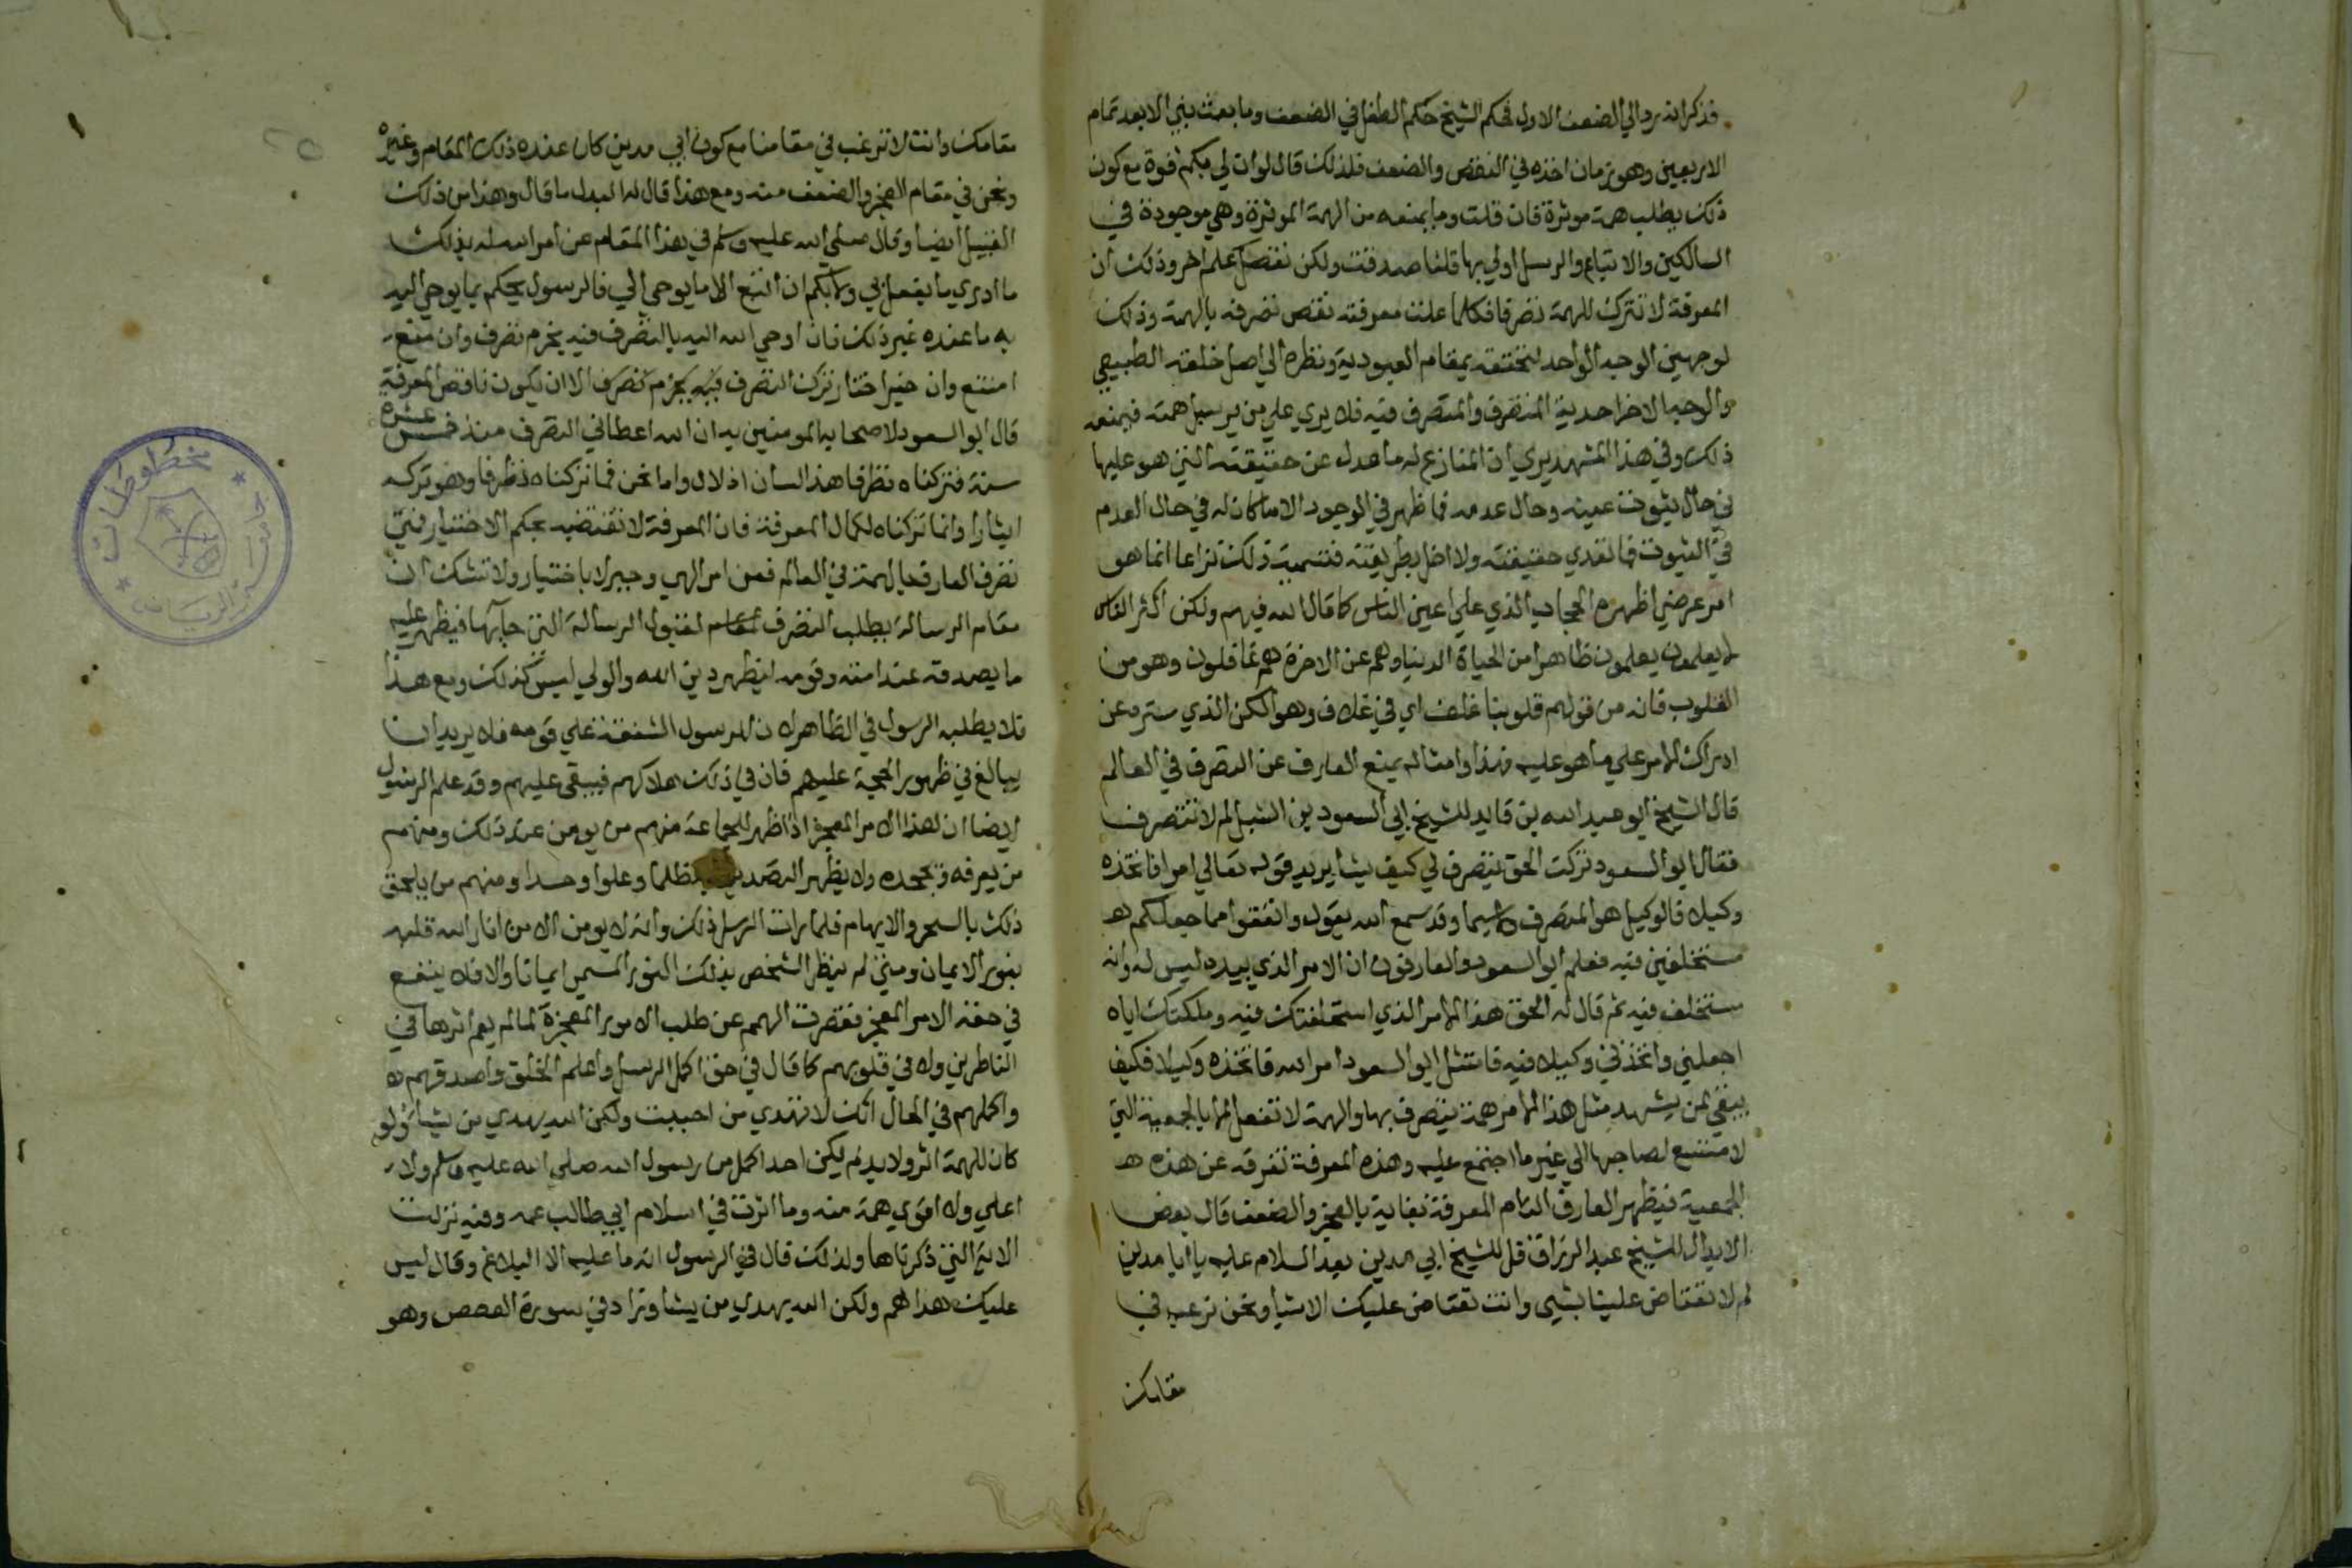 فذكر انه رد الي الضعف الاول فحكم الشيخ حكم الطفل في الضعف وما بعث نبي الا بعد تمام
الاربعين وهو زمان اخذه في النقص والضعف فلذلك قال لو ان لي بكم قوة مع كون
ذلك يطلب همة موثرة فان قلت وما يمنعه من الهمة الموثرة وهي موجودة في
السالكين والاتباع والرسل اولي بها قلنا صدقت ولكن نقصك علم اخر وذلك ان
المعرفة لا تترك للهمة تصرفا فكلما علت معرفته نقص تصرفه بالهمة وذلك
لوجهين الوجه الواحد لتحققه بمقام العبودية ونظره الي اصل خلقته الطبيعي
والوجه الاخر احدية المتصرف والمتصرف فيه فلا يري علي من يرسل همته فيمنعه
ذلك وفي هذا المشهد يري ان المنازع له ما عدل عن حقيقته التي هو عليها
في حال ثبوت عينه وحال عدمه فما ظهر في الوجود الا ما كان له في حال العدم
في الثبوت فما تعدي حقيقته ولا اخل بطريقته فتسمية ذلك نزاعا انما هو
امر عرضي اظهره الحجاب الذي علي اعين الناس كما قال الله فيهم ولكن اكثر الناس
لا يعلمون يعلمون ظاهرا من الحياة الدنيا وهم عن الاخرة هم غافلون وهو من
القلوب فانه من قولهم قلوبنا غلف اي في غلاف وهو الكن الذي ستره عن
ادراك الامر علي ما هو عليه فهذا وامثاله يمنع العارف عن التصرف في العالم
قال الشيخ ابو عبد الله بن قايد للشيخ ابي السعود بن الشبل لم لا تتصرف
فقال ابو السعود تركت الحق يتصرف لي كيف يشا يريد قوله تعالي امرا فاتخذه
وكيلا فالوكيل هو المتصرف لا سيما وقد سمع الله يقول وانفقوا مما جعلكم
مستخلفين فيه فعلم ابو السعود والعارفون ان الامر الذي بيده ليس له وانه
مستخلف فيه ثم قال له الحق هذا الامر الذي استخلفتك فيه وملكتك اياه
اجعلني واتخذني وكيلا فيه فامتثل ابو السعود امر الله فاتخذه وكيلا فكيف
يبقي لمن يشهد مثل هذا الامر همة يتصرف بها والهمة لا تفعل الا بالجمعية التي
لا متسع لصاحبها الي غير ما اجتمع عليه وهذه المعرفة تفرقه عن هذه
الجمعية فيظهر العارف التام المعرفة بغاية بالعجز والضعف قال بعض
الابدال للشيخ عبد الرزاق قل للشيخ ابي مدين بعد السلام عليه يا ابا مدين
لم لا تعتاض علينا بشي وانت تعتاض عليك الاشيا ونحن نرغب في
مقامك
مقامك وانت لا ترغب في مقامنا مع كون ابي مدين كان عنده ذلك المقام وغيره
ونحن في مقام العجز والضعف منه ومع هذا قال له البدل ما قال وهذا من ذلك
القبيل ايضا وقال صلي الله عليه وسلم في هذا المقام عن امر الله له بذلك
ما ادري ما يفعل بي ولا بكم ان اتبع الا ما يوحي الي فالرسول بحكم بما يوحي اليه
به ما عنده غير ذلك فان اوحي الله اليه بالتصرف فيه بجزم تصرف وان منع
امتنع وان خير اختار ترك التصرف فيه بجزم تصرف الا ان يكون ناقص المعرفة
قال ابو السعود لاصحابه المومنين به ان الله اعطاني التصرف منذ خمس عشرة
سنة فتركناه تظرفا هذا لسان ادلال واما نحن فما تركناه تظرفا وهو تركه
ايثارا وانما تركناه لكمال المعرفة فان المعرفة لا تقتضيه بحكم الاختيار فمتي
تصرف العارف بالهمة في العالم فعن امر الهي وجبر لا باختيار ولا تشك ان
مقام الرسالة يطلب التصرف لقبول الرسالة التي جا بها فيظهر عليه
ما يصدقه عند امته وقومه ليظهر دين الله والولي ليس كذلك ومع هذا
فلا يطلبه الرسول في الظاهر لان للرسول الشفقة علي قومه فلا يريد ان
يبالغ في ظهور الحجة عليهم فان في ذلك هلاكهم فيبقي عليهم وقد علم الرسول
ايضا ان هذا الامر المعجز اذا ظهر للجماعة منهم من يومن عند ذلك ومنهم
من يعرفه ويجحده ولا يظهر التصديق به ظلما وعلوا وحسدا ومنهم من يلحق
ذلك بالسحر والايهام فلما رات الرسل ذلك وانه لا يومن الا من انار الله قلبه
بنور الايمان ومتي لم ينظر الشخص بذلك النور المسمي ايمانا والا فلا ينفع
في حقه الامر المعجز فقصرت الهمم عن طلب الامور المعجزة لما لم يعم اثرها في
الناظرين ولا في قلوبهم كما قال في حق اكمل الرسل واعلم الخلق واصدقهم
واكملهم في الحال انك لا تهدي من احببت ولكن الله يهدي من يشا ولو
كان للهمة اثر ولابد لم يكن احد اكمل من رسول الله صلي الله عليه وسلم ولا
اعلي ولا اقوي همة منه وما اثرت في اسلام ابي طالب عمه وفيه نزلت
الاية التي ذكرناها ولذلك قال في الرسول انه ما عليه الا البلاغ وقال ليس
عليك هداهم ولكن الله يهدي من يشا وزاد في سورة القصص وهو
مخطوطات